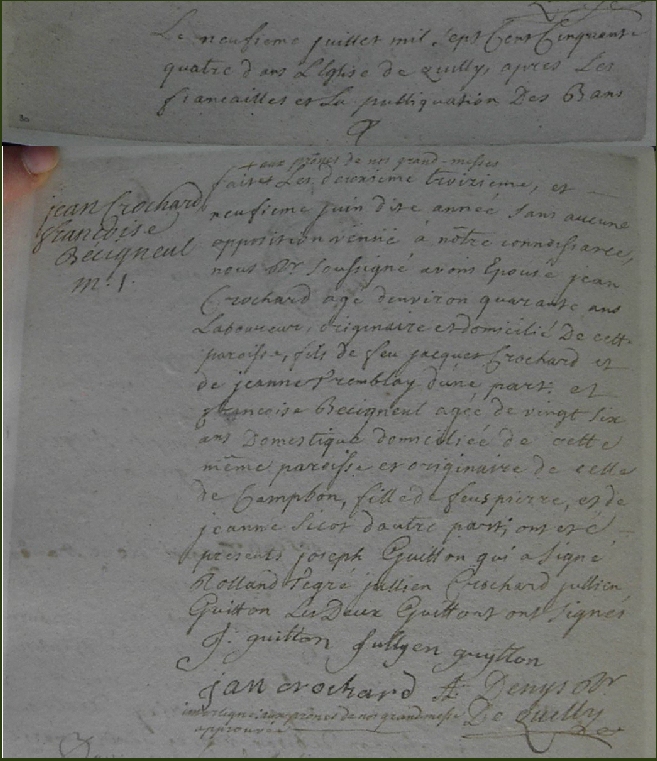 Le neufieme juillet mil sept Cent Cinquante
quatre dans L'Eglise de quilly, apres Les
fiancailles et La publiquation Des Bans
+ aux prônes de nos grand-messes
faites Les deuxieme troixieme, et
neufieme juin dite année sans aucune
opposition venue à nôtre connoissance,
nous soussigné avons Epousé jean
Crochard agé d'environ quarante ans
Laboureur, originaire et domicilié De cette
paroisse, fils de feu jacques Crochard et
de jeanne Tremblay d'une part. et
francoise Becigneul agée de vingt six
ans Domestique domiciliée de cette
même paroisse et originaire de celle
de Campbon, fille de feus pierre, et de
jeanne Sicot d'autre part; ont eté
presents joseph Guitton qui a signé
Rolland Segré jullien Crochard jullien
Guitton Les Deux Guittons ont signes
jean Crochard
francoise
Becigneul
m. 1.
J. guitton jullyen guytton
jan crochard Denys
De Quilly
interligne aux prônes de nos grand messe
approuvée